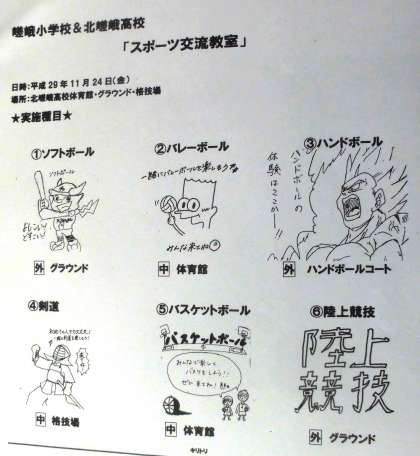 嵯峨小学校＆北嵯峨高校
「スポーツ交流教室」
日時：平成29年11月24日(金)
場所：北嵯峨高校体育館・グラウンド・格技場
★実施種目★
①ソフトボール
ソフトボール
外 グラウンド
②バレーボール
一緒にバレーボールを楽しもうよ
みんな来てね
中 体育館
③ハンドボール
ハンドボールの
体験はここかー!!
外 ハンドボールコート
④剣道
中 格技場
⑤バスケットボール
バスケットボール
みんなで楽しく
バスケをしよう!
ぜひ来てね!
中 体育館
⑥陸上競技
陸上
競技
外 グラウンド
キリトリ